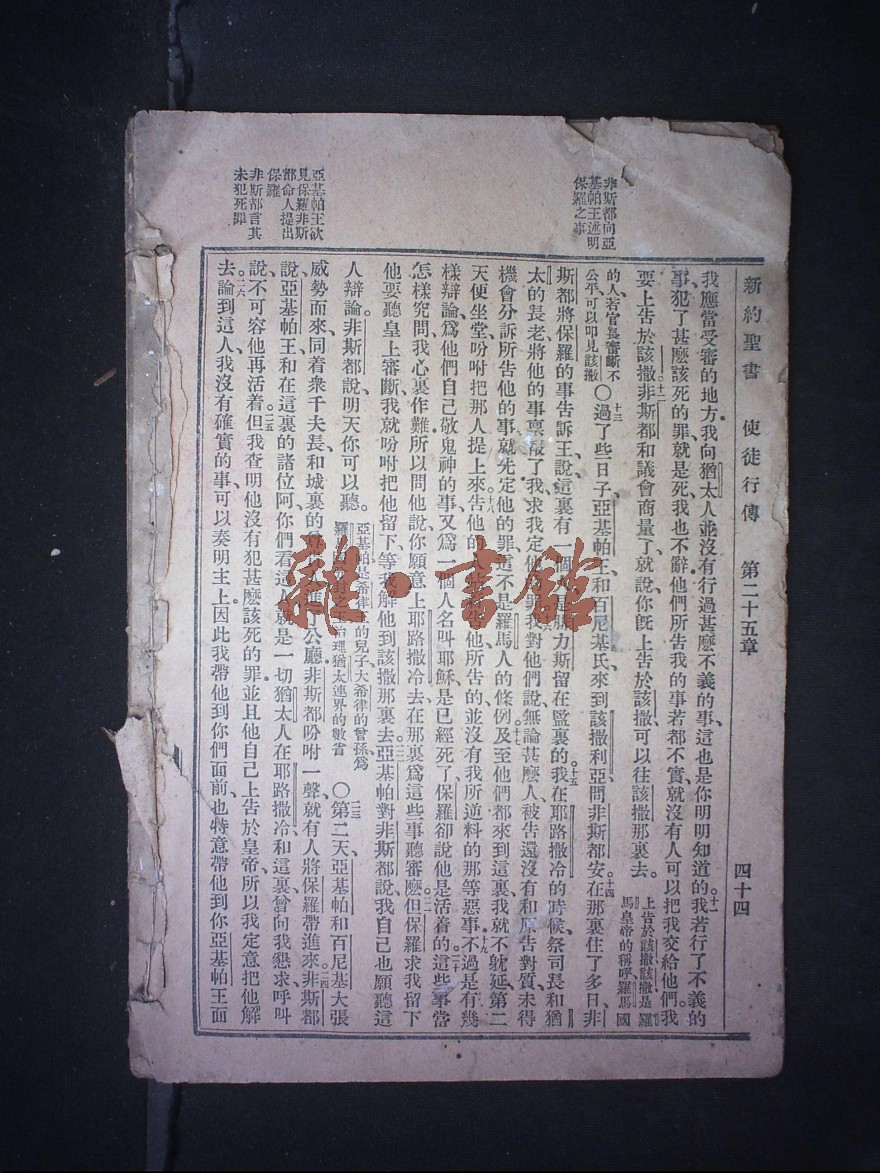 新約聖書 使徒行傳 第二十五章 四十四
非斯都向亞
基帕王述明
保羅之事
亞基帕王欲
見保羅非斯
都命人提出
保羅
非斯都言其
未犯死罪
我應當受審的地方、我向猶太人並沒有行過甚麼不義的事、這也是你明明知道的。十一我若行了不義的
事、犯了甚麼該死的罪、就是死、我也不辭、他們所告我的事若都不實、就沒有人可以把我交給他們、我
要上告於該撒。十二非斯都和議會商量了、就說、你旣上告於該撒、可以往該撒那裏去。上告於該撒該撒是羅馬皇帝的稱呼羅馬國
的人、若官長審斷不公平、可以叩見該撒〇十三過了些日子、亞基帕王和百尼基氏來到該撒利亞、問非斯都安。十四在那裏住了多日、非
斯都將保羅的事告訴王、說、這裏有一個人、是腓力斯留在監裏的。十五我在耶路撒冷的時候、祭司長和猶
太的長老、將他的事稟報了我、求我定他的罪。十六我對他們說、無論甚麼人、被告還沒有和原告對質、未得
機會分訴所告他的事、就先定他的罪、這不是羅馬人的條例。十七及至他們都來到這裏、我就不躭延、第二
天便坐堂、吩咐把那人提上來。十八告他的人站着告他、所告的、並沒有我所逆料的那等惡事。十九不過是有幾
樣辯論、爲他們自己敬鬼神的事、又爲一個人名叫耶穌、是已經死了、保羅卻說他是活着的。二十這些事當
怎樣究問、我心裏作難、所以問他說、你願意上耶路撒冷去、在那裏爲這些事聽審麼。二一但保羅求我留下
他、要聽皇上審斷、我就吩咐把他留下、等我解他到該撒那裏去。二二亞基帕對非斯都說、我自己也願聽這
人辯論。非斯都說、明天你可以聽。亞基帕是希律王的兒子、大希律的曾孫、爲羅馬治理猶太連界的數省〇二三第二天、亞基帕和百尼基大張
威勢而來、同着衆千夫長、和城裏的尊貴人、進了公廳、非斯都吩咐一聲、就有人將保羅帶進來。二四非斯都
說、亞基帕王、和在這裏的諸位阿、你們看這人、就是一切猶太人、在耶路撒冷和這裏、曾向我懇求呼叫
說、不可容他再活着。二五但我查明他沒有犯甚麼該死的罪、並且他自己上告於皇帝、所以我定意把他解
去。二六論到這人、我沒有確實的事、可以奏明主上、因此我帶他到你們面前、也特意帶他到你亞基帕王面
雜·書館